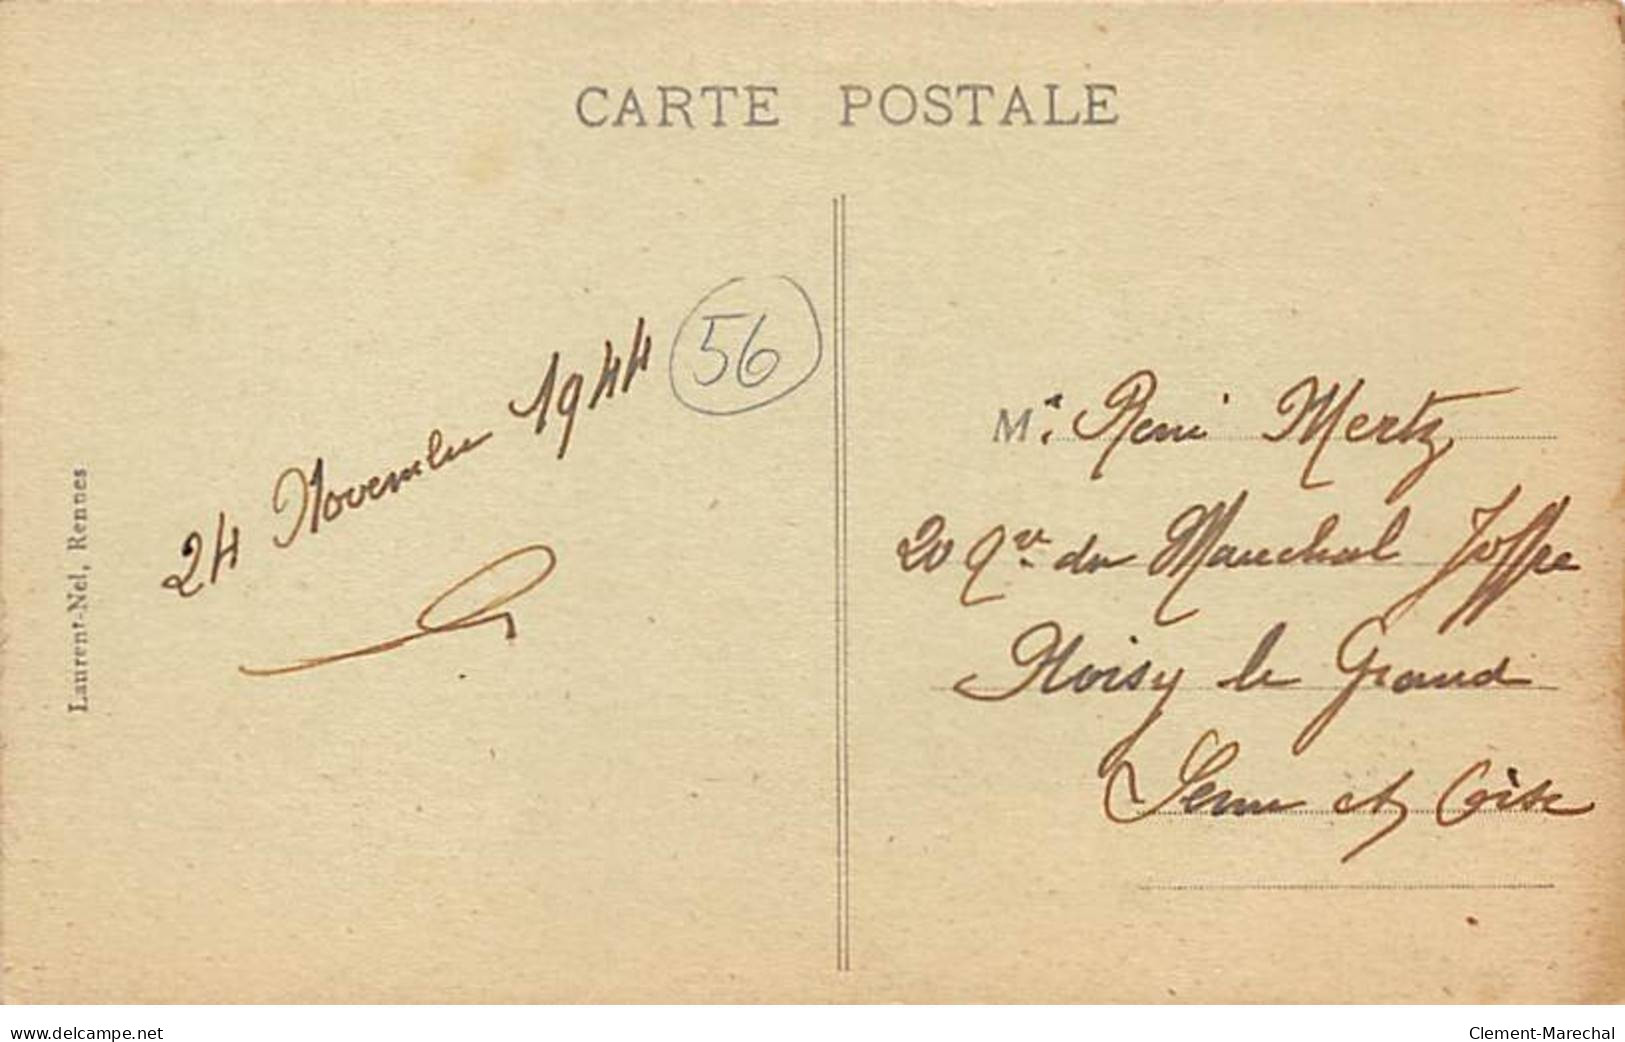 CARTE POSTALE
Laurent-Nel, Rennes
24 Novembre 1944
56
Mr René Mertz
20 Av. du Marechal Joffre
Noisy le Grand
Seine et Oise
www.delcampe.net
Clement-Marechal